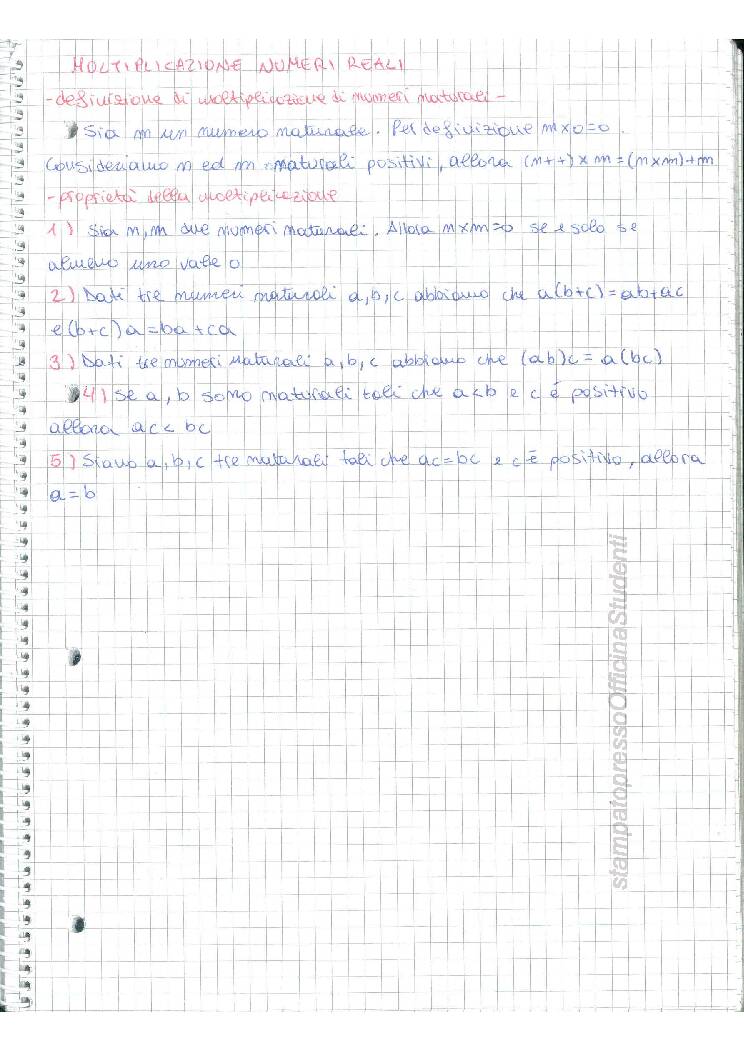 MOLTIPLICAZIONE NUMERI REALI
-definizione di moltiplicazione di numeri naturali-
Sia m un numero naturale. Per definizione m×0=0.
Consideriamo n ed m naturali positivi, allora (n++)×m=(n×m)+m
-proprietà della moltiplicazione
1) Sia n,m due numeri naturali. Allora n×m=0 se e solo se
almeno uno vale 0
2) Dati tre numeri naturali a,b,c abbiamo che a(b+c)=ab+ac
e (b+c)a=ba+ca
3) Dati tre numeri naturali a,b,c abbiamo che (ab)c=a(bc)
4) Se a,b sono naturali tali che a<b e c é positivo
allora ac<bc
5) Siano a,b,c tre naturali tali che ac=bc e c é positivo, allora
a=b
stampatopressoOfficinaStudenti